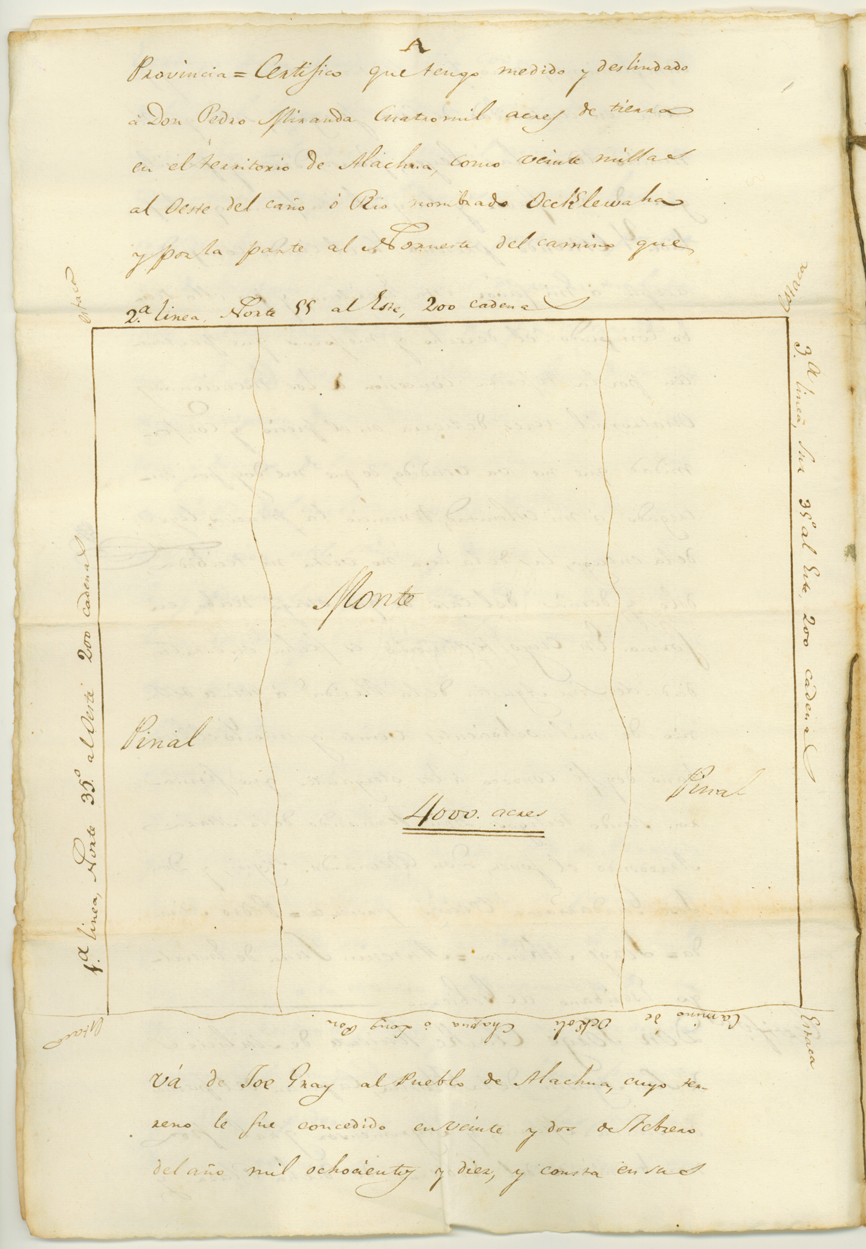 A
Provincia = Certifico que tengo medido y deslindado
á Don Pedro Miranda Cuatromil acres de tierra
en el territorio de Alachua, como veinte millas
al Oeste del caño ó Rio nombrado Ocklewaha
y por la parte al Norueste del camino que
2.ª linea Norte 55 al Este, 200 cadenas
Estaca
Estaca
3.ª linea, Sur 35º al Este, 200 cadenas
1.ª linea, Norte 35º al Oeste 200 cadenas
Monte
Pinal
Pinal
4000. acres
Estaca
Camino de Ockoli Chapna ó Long
Estaca
vá de Joe Gray al Pueblo de Alachua, cuyo ter
reno le fue concedido en veinte y dos de Febrero
del año mil ochocientos y diez, y consta en sus